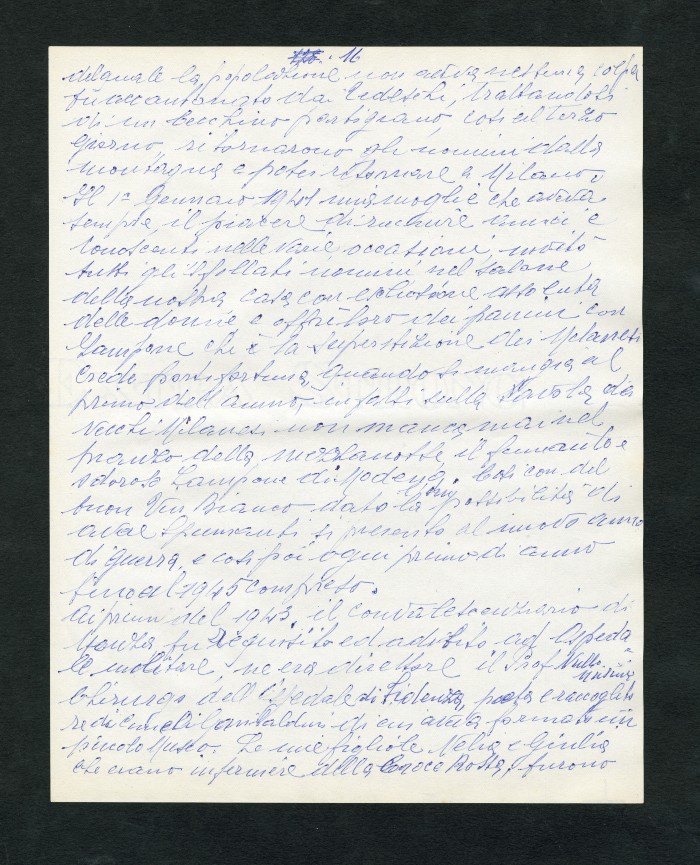 16
della quale la popolazione non aveva nessuna colpa
fu accantonato dai Tedeschi, trattandosi
di un cecchino partigiano, così al terzo
giorno, ritornarono gli uomini dalla
montagna e potei ritornare a Milano.
Il 1° Gennaio 1941 mia moglie che aveva
sempre, il piacere di riunire amici e
conoscenti nelle varie occasione, invitò
tutti gli sfollati uomini nel salone
della nostra casa con esclusione assoluta
delle donne e offrì loro dei panini con
Zampone che è la superstizione dei Milanesi
crede porti fortuna, quando si mangia al
primo dell'anno, infatti sulla Tavola dei
Vecchi Milanesi non manca mai nel
pranzo della mezzanotte il fumante e
odoroso Zampone di Modena. Così con del
buon Vin Bianco dato la possibilità di
avere Spumanti si presentò al nuovo anno
di guerra, e così poi ogni primo di anno
fino al 1945 compreso.
Ai primi del 1943 il convalescenziario di
Monza fu requisito ed adibito ad Ospeda=
le militare, ne era direttore il Prof Nullo
Chirurgo dell'Ospedale di Fidenza, poeta e raccoglito
re di cimeli Garibaldini di cui aveva formato un
piccolo Museo. Le mie figliole Nelia e Giulia
che erano infermiere della Croce Rossa, furono